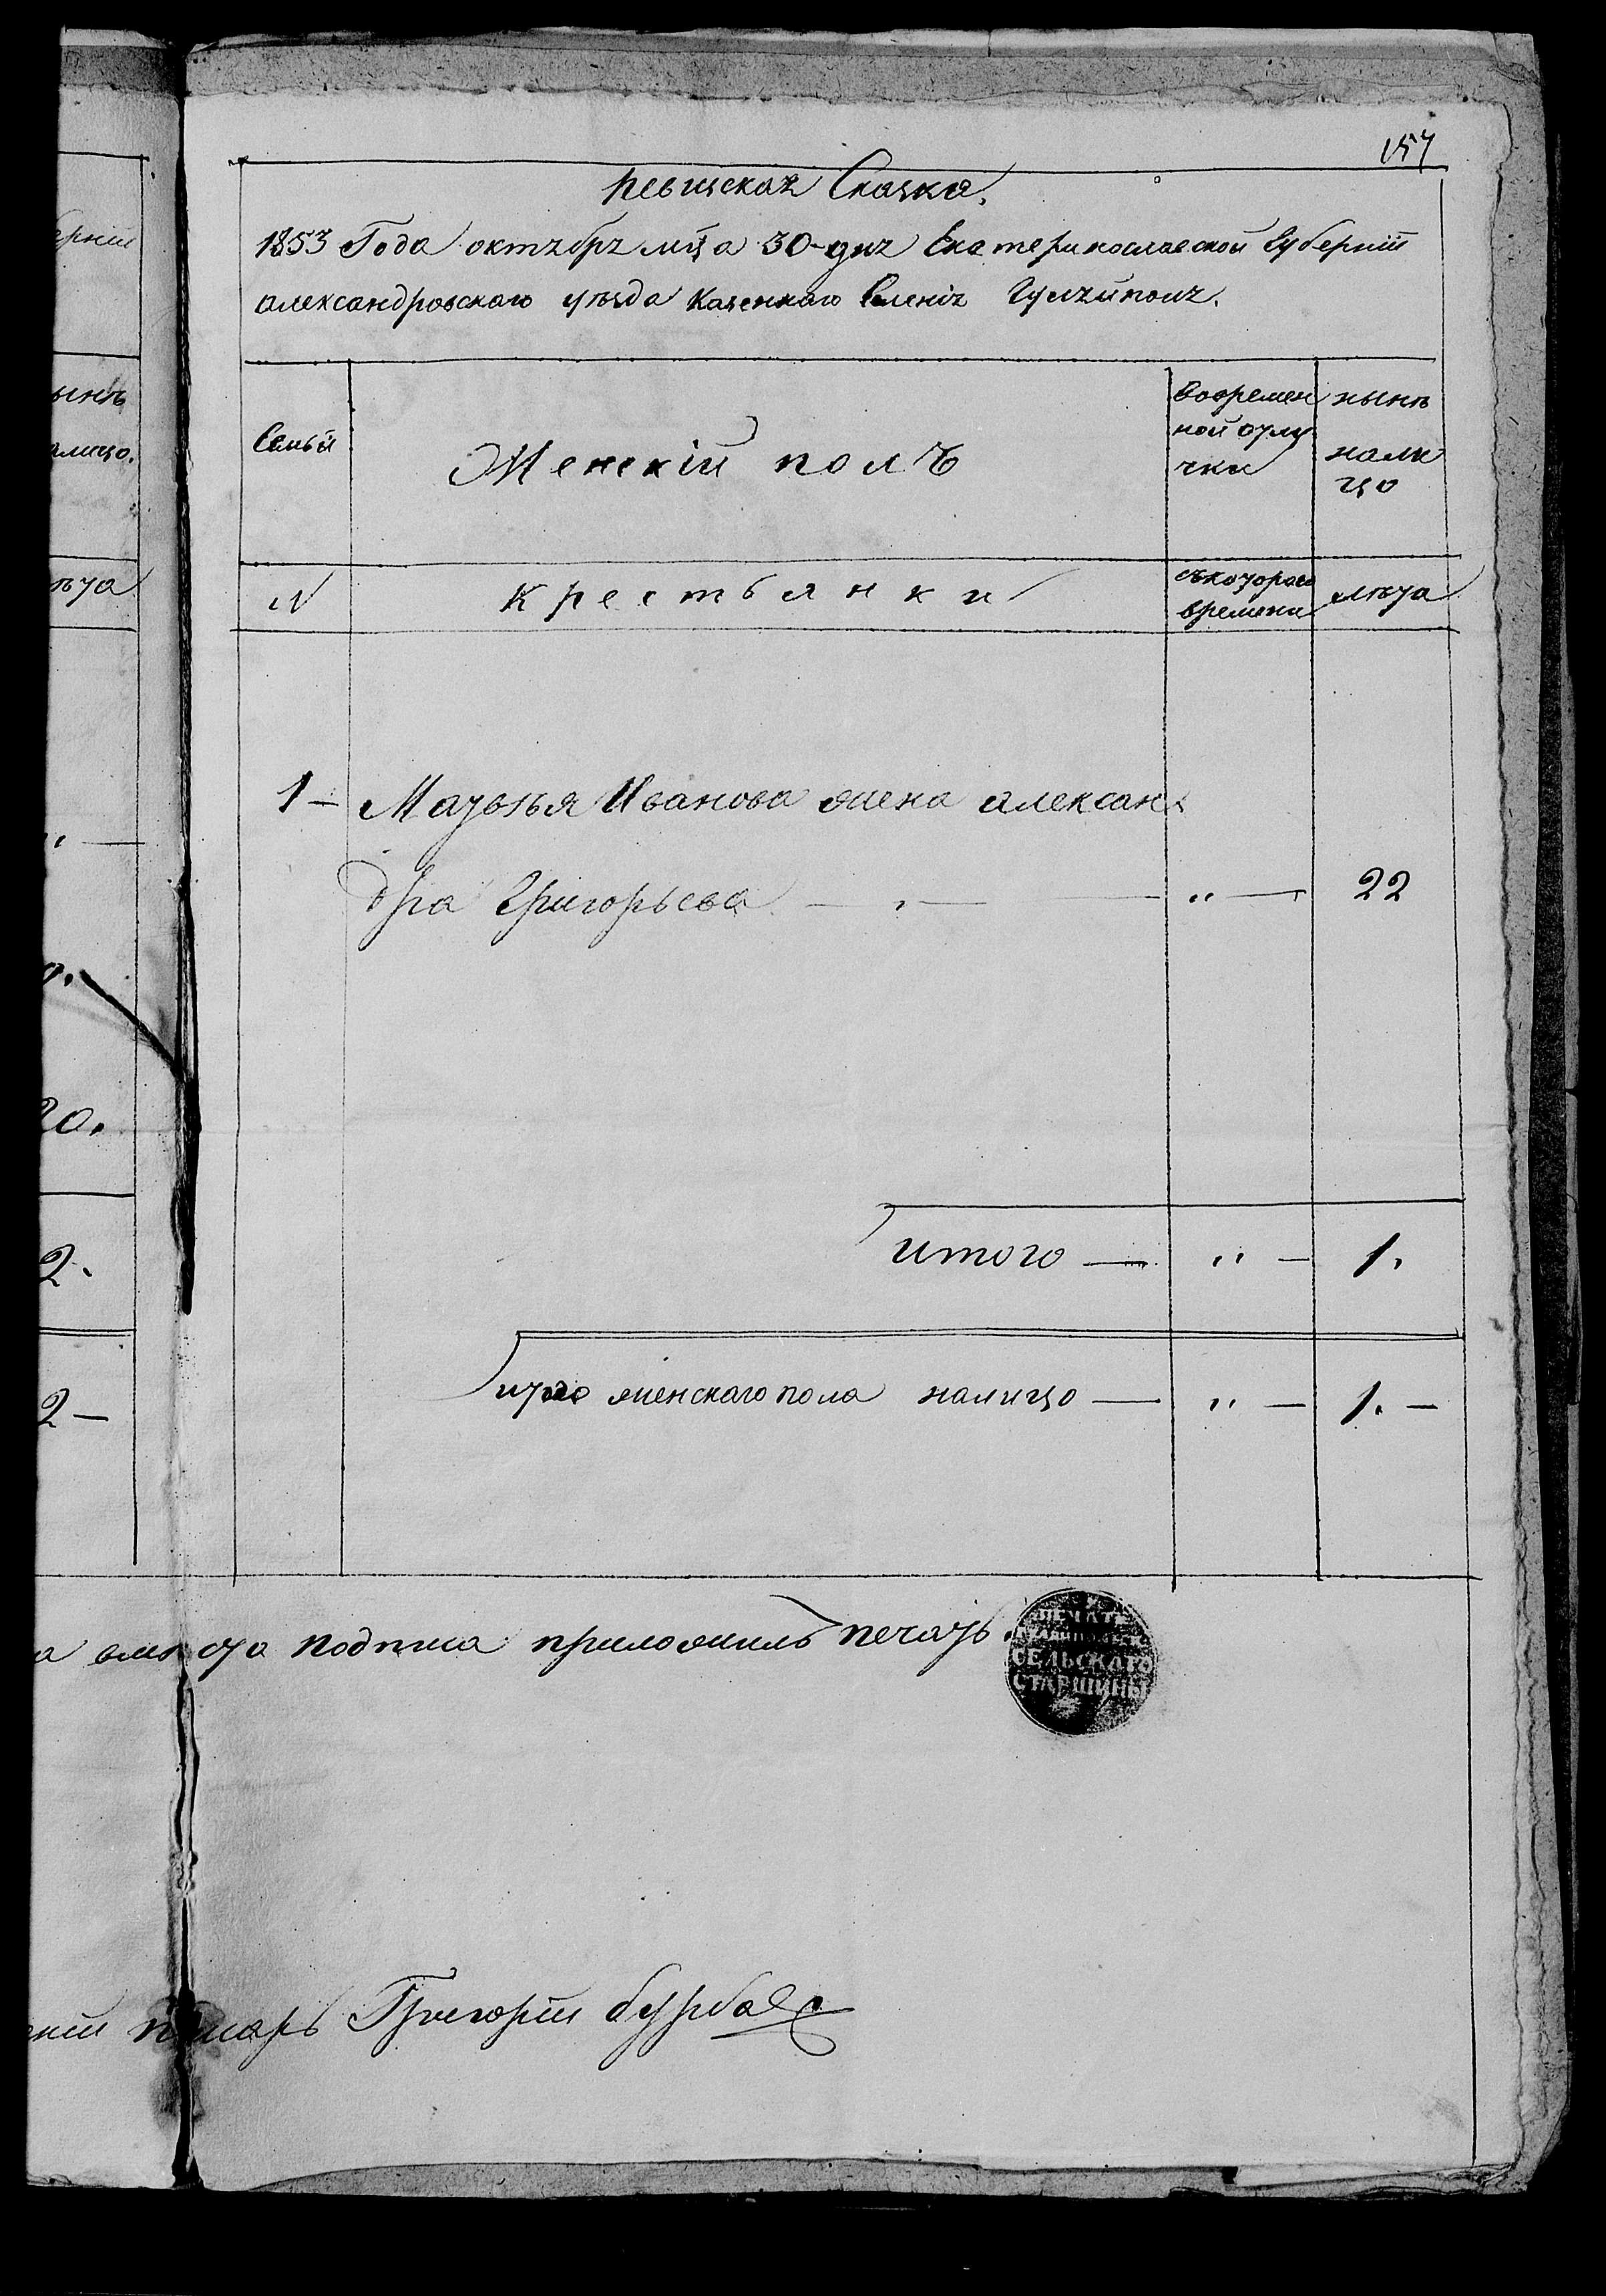 157
ревизская Сказка.
1853 Года октября мца 30 дня Екатеринославской Губерніи
александровскаго уѣзда Казеннаго Селенія Гуляйполя.
Семьи
Женскій полъ
вовремен
ной отлу
чки
нынѣ
нали
цо
N
Крестьянки
съкотораго
времени
лѣта
1 — Матвѣя Иванова жена алексан
дра Григорьева — „ — 22
итого — „ — 1.
итого женскаго пола налицо — „ — 1. —
вмѣсто подписа приложилъ печать.
ПЕЧАТЬ
СЕЛЬСКАГО
СТАРШИНЫ
писарь Григорій
ерніи
ынѣ
алицо.
ѣта
20.
2.
2 —